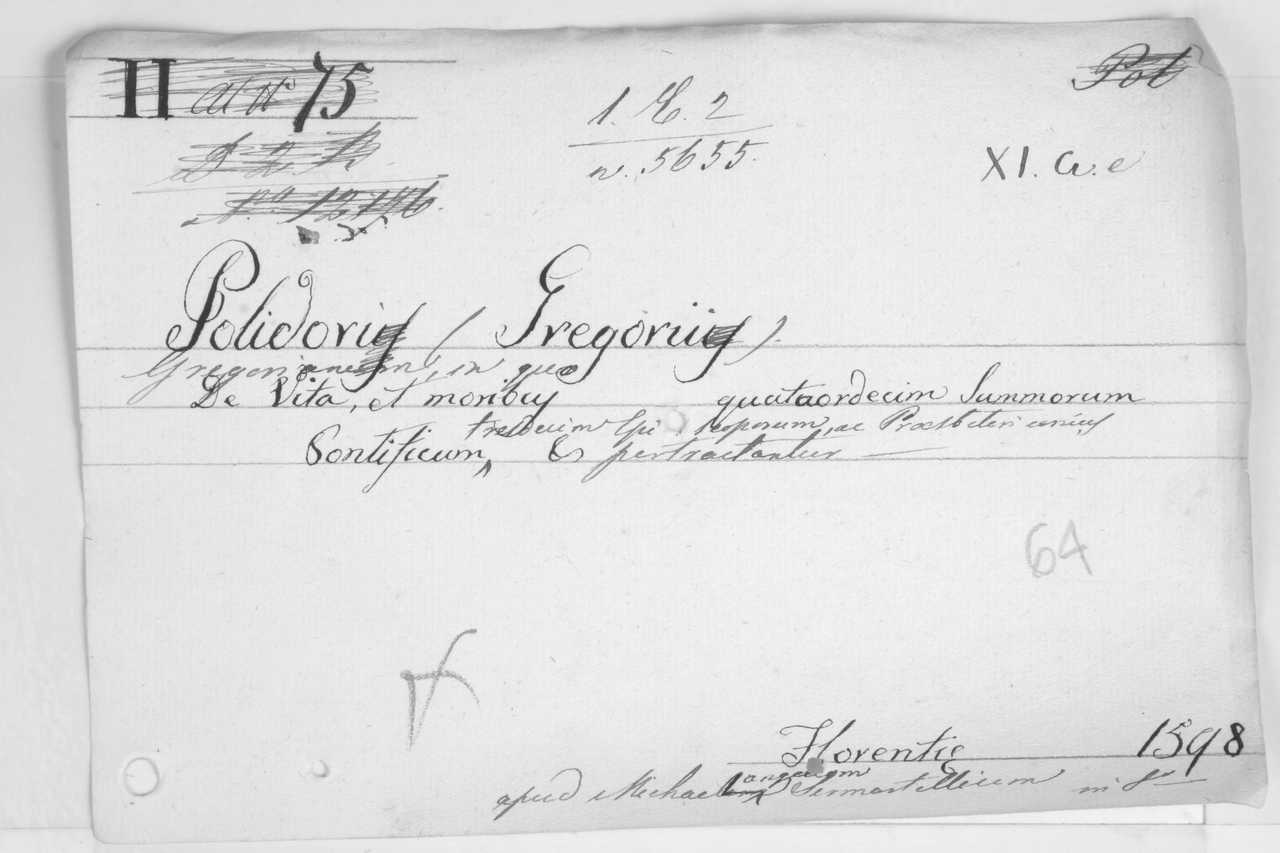 II 75 Pol
1. E. 2
n. 5655.
XI. a. e
Polidori (Gregorii).
Gregorianum, in quo
De Vita, et moribus quatuordecim Summorum
tredecim Episcoporum, ac Præsbiteri unius
Pontificum, & pertractantur
64
Florentię 1598
apud Michaelangelum Sermartellium in 8°